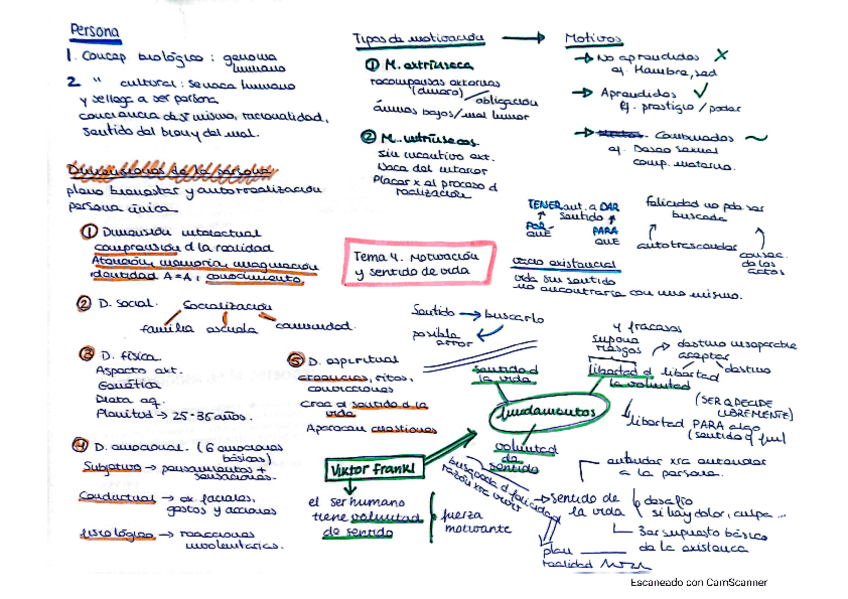 Persona
1. Concep biológico: genoma
humano
2 " cultural: se nace humano
y se llega a ser persona
conciencia de sí mismo, racionalidad,
sentido del bien y del mal.
Dimensiones de la persona
pleno bienestar y autorrealización
persona única
① Dimensión intelectual
comprensión d la realidad
Atención, memoria, imaginación
identidad A=A, conocimiento
② D. social. Socialización
familia escuela comunidad.
③ D. física
Aspecto ext.
Genética
Dieta eq.
Plenitud → 25-35 años.
④ D. emocional. (6 emociones
básicas)
Subjetivo → pensamientos +
sensaciones.
Conductual → ex faciales,
gestos y acciones
fisiológico → reacciones
involuntarias.
Tipos de motivación →
① M. extrínseca
recompensas externas
(dinero)
obligación
ánimos bajos/mal humor
② M. intrínsecas
sin incentivo ext.
Nace del interior
Placer x el proceso d
realización
Motivos
→ No aprendidos X
ej. Hambre, sed
→ Aprendidos ✓
Ej. prestigio / poder
→ Combinados ~
ej. Deseo sexual
comp. materno.
Tema 4. Motivación
y sentido de vida
TENER aut. a DAR
sentido
POR-
QUÉ
PARA
QUÉ
felicidad no pde ser
buscada
autotrascender
consec.
de los
actos
vacío existencial
vida sin sentido
no encontrarse con uno mismo.
Sentido → buscarlo
posible
error
⑤ D. espiritual
creencias, ritos,
convicciones
Crea el sentido d la
vida
Aparecen cuestiones
Viktor Frankl
el ser humano
tiene voluntad
de sentido
fuerza
motivante
fundamentos
sentido d
la vida
voluntad
de
sentido
libertad d
la voluntad
y fracasos
supone
riesgos
destino inseparable
aceptar
libertad
destino
(SER Q DECIDE
LIBREMENTE)
libertad PARA algo
búsqueda d felicidad
razón xra vivir
entender xra entender
a la persona.
→ sentido de
la vida
desafío
si hay dolor, culpa...
3er supuesto básico
de la existencia
plan
realidad
Escaneado con CamScanner